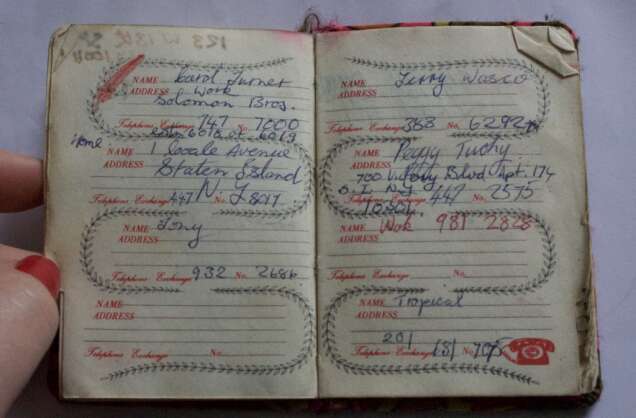 123 W 13th
NAME Carol Turner
ADDRESS Work
Solomon Bros.
Telephone Exchange 747 No. 7000
6018 or 6019
Home
NAME 1 Locale Avenue
ADDRESS Staten Island
N.Y.
Telephone Exchange 447 No. 8017
NAME Tony
ADDRESS
Telephone Exchange 932 No. 2686
NAME
ADDRESS
Telephone Exchange No.
NAME Terry Wasco
ADDRESS
Telephone Exchange 388 No. 6292
NAME Peggy Tuohy
ADDRESS 700 Victory Blvd Apt. 17H
S.I. N.Y.
Telephone Exchange 447 No. 2575
10301
NAME Work 981 2828
ADDRESS
Telephone Exchange No.
NAME Tropical
ADDRESS
201
Telephone Exchange No.